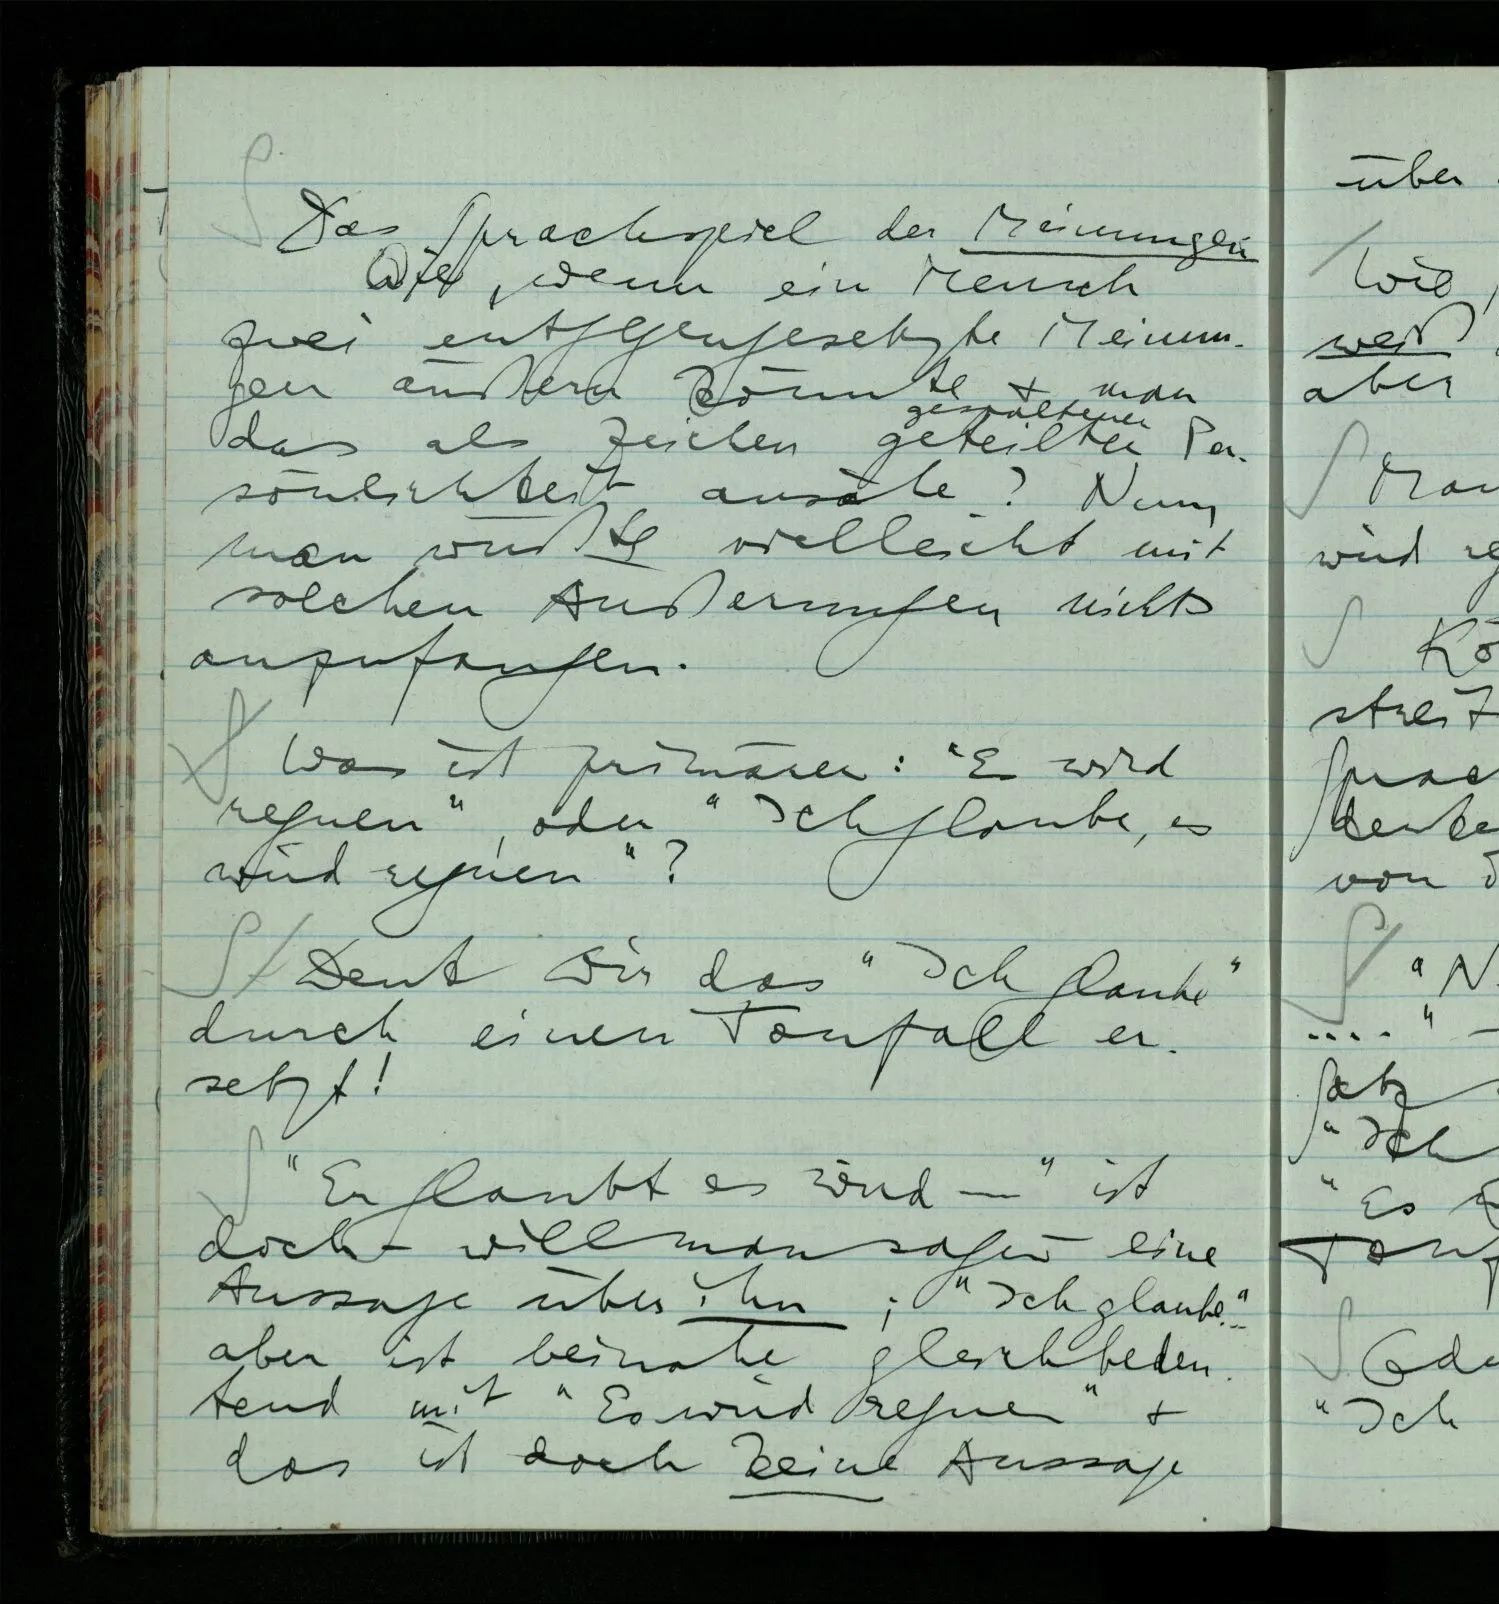 Das Sprachspiel der Meinungen
Wie, wenn ein Mensch
zwei entgegengesetzte Meinun-
gen äußern könnte & man
gespaltener
das als Zeichen geteilter Per-
sönlichkeit ansähe? Nun,
man wüßte vielleicht mit
solchen Äußerungen nichts
anzufangen.
Was ist primärer: "Es wird
regnen", oder "Ich glaube, es
wird regnen"?
Denk Dir das "Ich glaube"
durch einen Tonfall er-
setzt!
"Er glaubt es wird —" ist
doch – will man sagen – eine
Aussage über ihn; "Ich glaube.."
aber ist beinahe gleichbedeu-
tend mit "Es wird regnen" &
das ist doch keine Aussage
über
Wie,
weiß
aber
Man
wird
Kö
streit
Sprac
denke
von
"N
...." –
Satz
"Ich
"Es
Tonf
Ode
"Ich